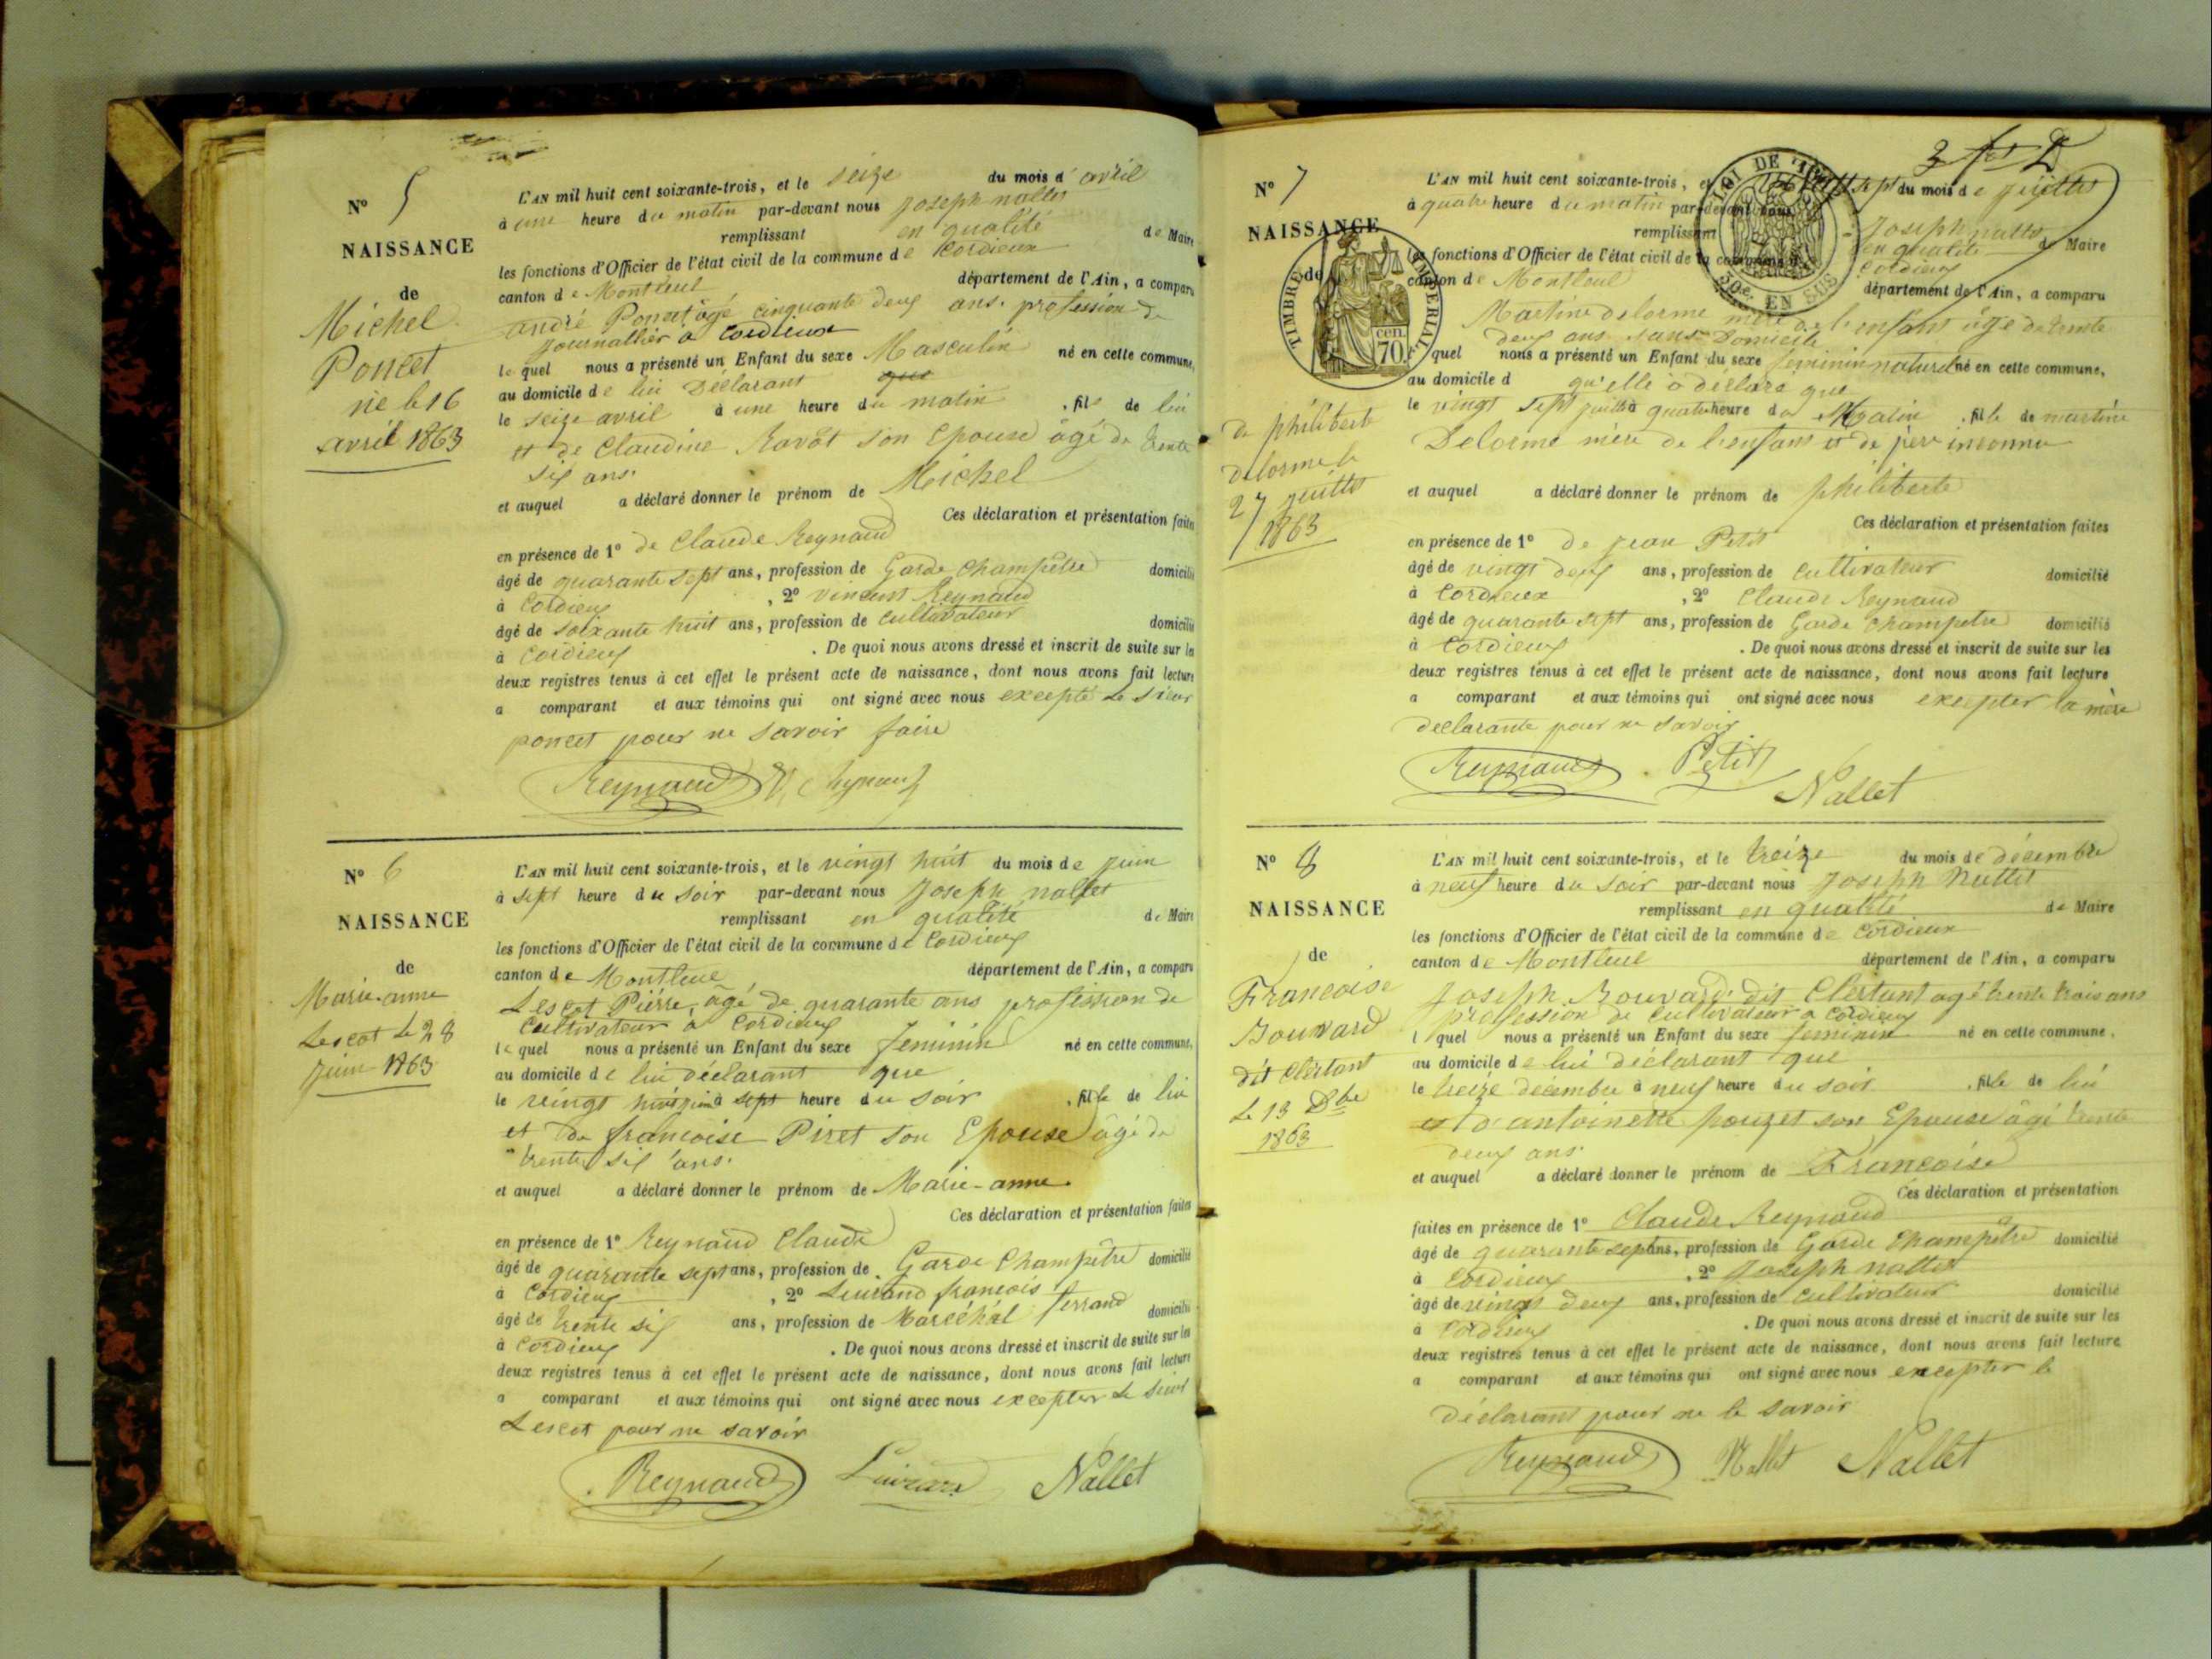 N° 5
NAISSANCE
de
Michel
Poncet
né le 16
avril 1863
L'AN mil huit cent soixante-trois, et le seize du mois d'avril
à une heure du matin par-devant nous joseph nallet
remplissant en qualité de Maire
les fonctions d'Officier de l'état civil de la commune de Cordieux
canton de Montluel département de l'Ain, a comparu
andré Poncet âgé cinquante deux ans. profession de
journallier à Cordieux
lequel nous a présenté un Enfant du sexe Masculin né en cette commune,
au domicile de lui Déclarant que
le seize avril à une heure du matin , fils de lui
et de Claudine Ravat son Epouse âgé de trente
six ans.
et auquel a déclaré donner le prénom de Michel
Ces déclaration et présentation faites
en présence de 1° de Claude Reynaud
âgé de quarante sept ans, profession de Garde Champêtre domicilié
à Cordieux , 2° vincent Reynaud
âgé de soixante huit ans, profession de cultivateur domicilié
à Cordieux . De quoi nous avons dressé et inscrit de suite sur les
deux registres tenus à cet effet le présent acte de naissance, dont nous avons fait lecture
a comparant et aux témoins qui ont signé avec nous excepté le sieur
poncet pour ne savoir faire
Reynaud V. Reynaud
N° 6
NAISSANCE
de
Marie-anne
Lescot le 28
juin 1863
L'AN mil huit cent soixante-trois, et le vingt huit du mois de juin
à sept heure du soir par-devant nous Joseph nallet
remplissant en qualité de Maire
les fonctions d'Officier de l'état civil de la commune de Cordieux
canton de Montluel département de l'Ain, a comparu
Lescot Pièrre, âgé de quarante ans profession de
Cultivateur à Cordieux
lequel nous a présenté un Enfant du sexe feminin né en cette commune,
au domicile de lui déclarant que
le vingt huit juin à sept heure du soir , fille de lui
et de francoise Piret son Epouse âgé de
trente six ans.
et auquel a déclaré donner le prénom de Marie-anne
Ces déclaration et présentation faites
en présence de 1° Reynaud Claude
âgé de quarante sept ans, profession de Garde Champêtre domicilié
à Cordieux , 2° francois
âgé de trente six ans, profession de Maréchal ferrand domicilié
à Cordieux . De quoi nous avons dressé et inscrit de suite sur les
deux registres tenus à cet effet le présent acte de naissance, dont nous avons fait lecture
a comparant et aux témoins qui ont signé avec nous excepter le sieur
Lescot pour ne savoir
Reynaud Nallet
N° 7
NAISSANCE
de
TIMBRE IMPERIAL
70 cen.
de philiberte
delorme le
27 juillet
1863
L'AN mil huit cent soixante-trois, et le vingt sept du mois de juillet
à quatre heure du matin par-devant nous
Joseph nallet
remplissant en qualité de Maire
les fonctions d'Officier de l'état civil de la commune de Cordieux
canton de Montluel département de l'Ain, a comparu
50c. EN SUS
Martine delorme mère de l'enfant âgé de trente
deux ans sans Domicile
quel nous a présenté un Enfant du sexe feminin naturel né en cette commune,
au domicile d qu'elle a déclaré que
le vingt sept juillet à quatre heure du Matin , fille de martine
Delorme mère de l'enfant et de père inconnu
et auquel a déclaré donner le prénom de philiberte
Ces déclaration et présentation faites
en présence de 1° de jean Petit
âgé de vingt deux ans, profession de Cultivateur domicilié
à Cordieux , 2° Claude Reynaud
âgé de quarante sept ans, profession de Garde champetre domicilié
à Cordieux . De quoi nous avons dressé et inscrit de suite sur les
deux registres tenus à cet effet le présent acte de naissance, dont nous avons fait lecture
a comparant et aux témoins qui ont signé avec nous excepter la mère
déclarante pour ne savoir
Reynaud Petit
Nallet
N° 8
NAISSANCE
de
Francoise
Bouvard
dit Clertant
Le 13 Dbre
1863
L'AN mil huit cent soixante-trois, et le treize du mois de décembre
à neuf heure du soir par-devant nous Joseph Nallet
remplissant en qualité de Maire
les fonctions d'Officier de l'état civil de la commune de Cordieux
canton de Montluel département de l'Ain, a comparu
Joseph Bouvard dit Clertant agé trente trois ans
profession de Cultivateur a Cordieux
l quel nous a présenté un Enfant du sexe feminin né en cette commune,
au domicile de lui déclarant que
le treize décembre à neuf heure du soir , fille de lui
et d'antoinette pouzet son Epouse âgé trente
deux ans.
et auquel a déclaré donner le prénom de Francoise
Ces déclaration et présentation
faites en présence de 1° Claude Reynaud
âgé de quarante sept ans, profession de Garde Champêtre domicilié
à Cordieux , 2° Joseph nallet
âgé de vingt deux ans, profession de cultivateur domicilié
à Cordieux . De quoi nous avons dressé et inscrit de suite sur les
deux registres tenus à cet effet le présent acte de naissance, dont nous avons fait lecture
a comparant et aux témoins qui ont signé avec nous excepter le
déclarant pour ne le savoir
Reynaud Nallet Nallet